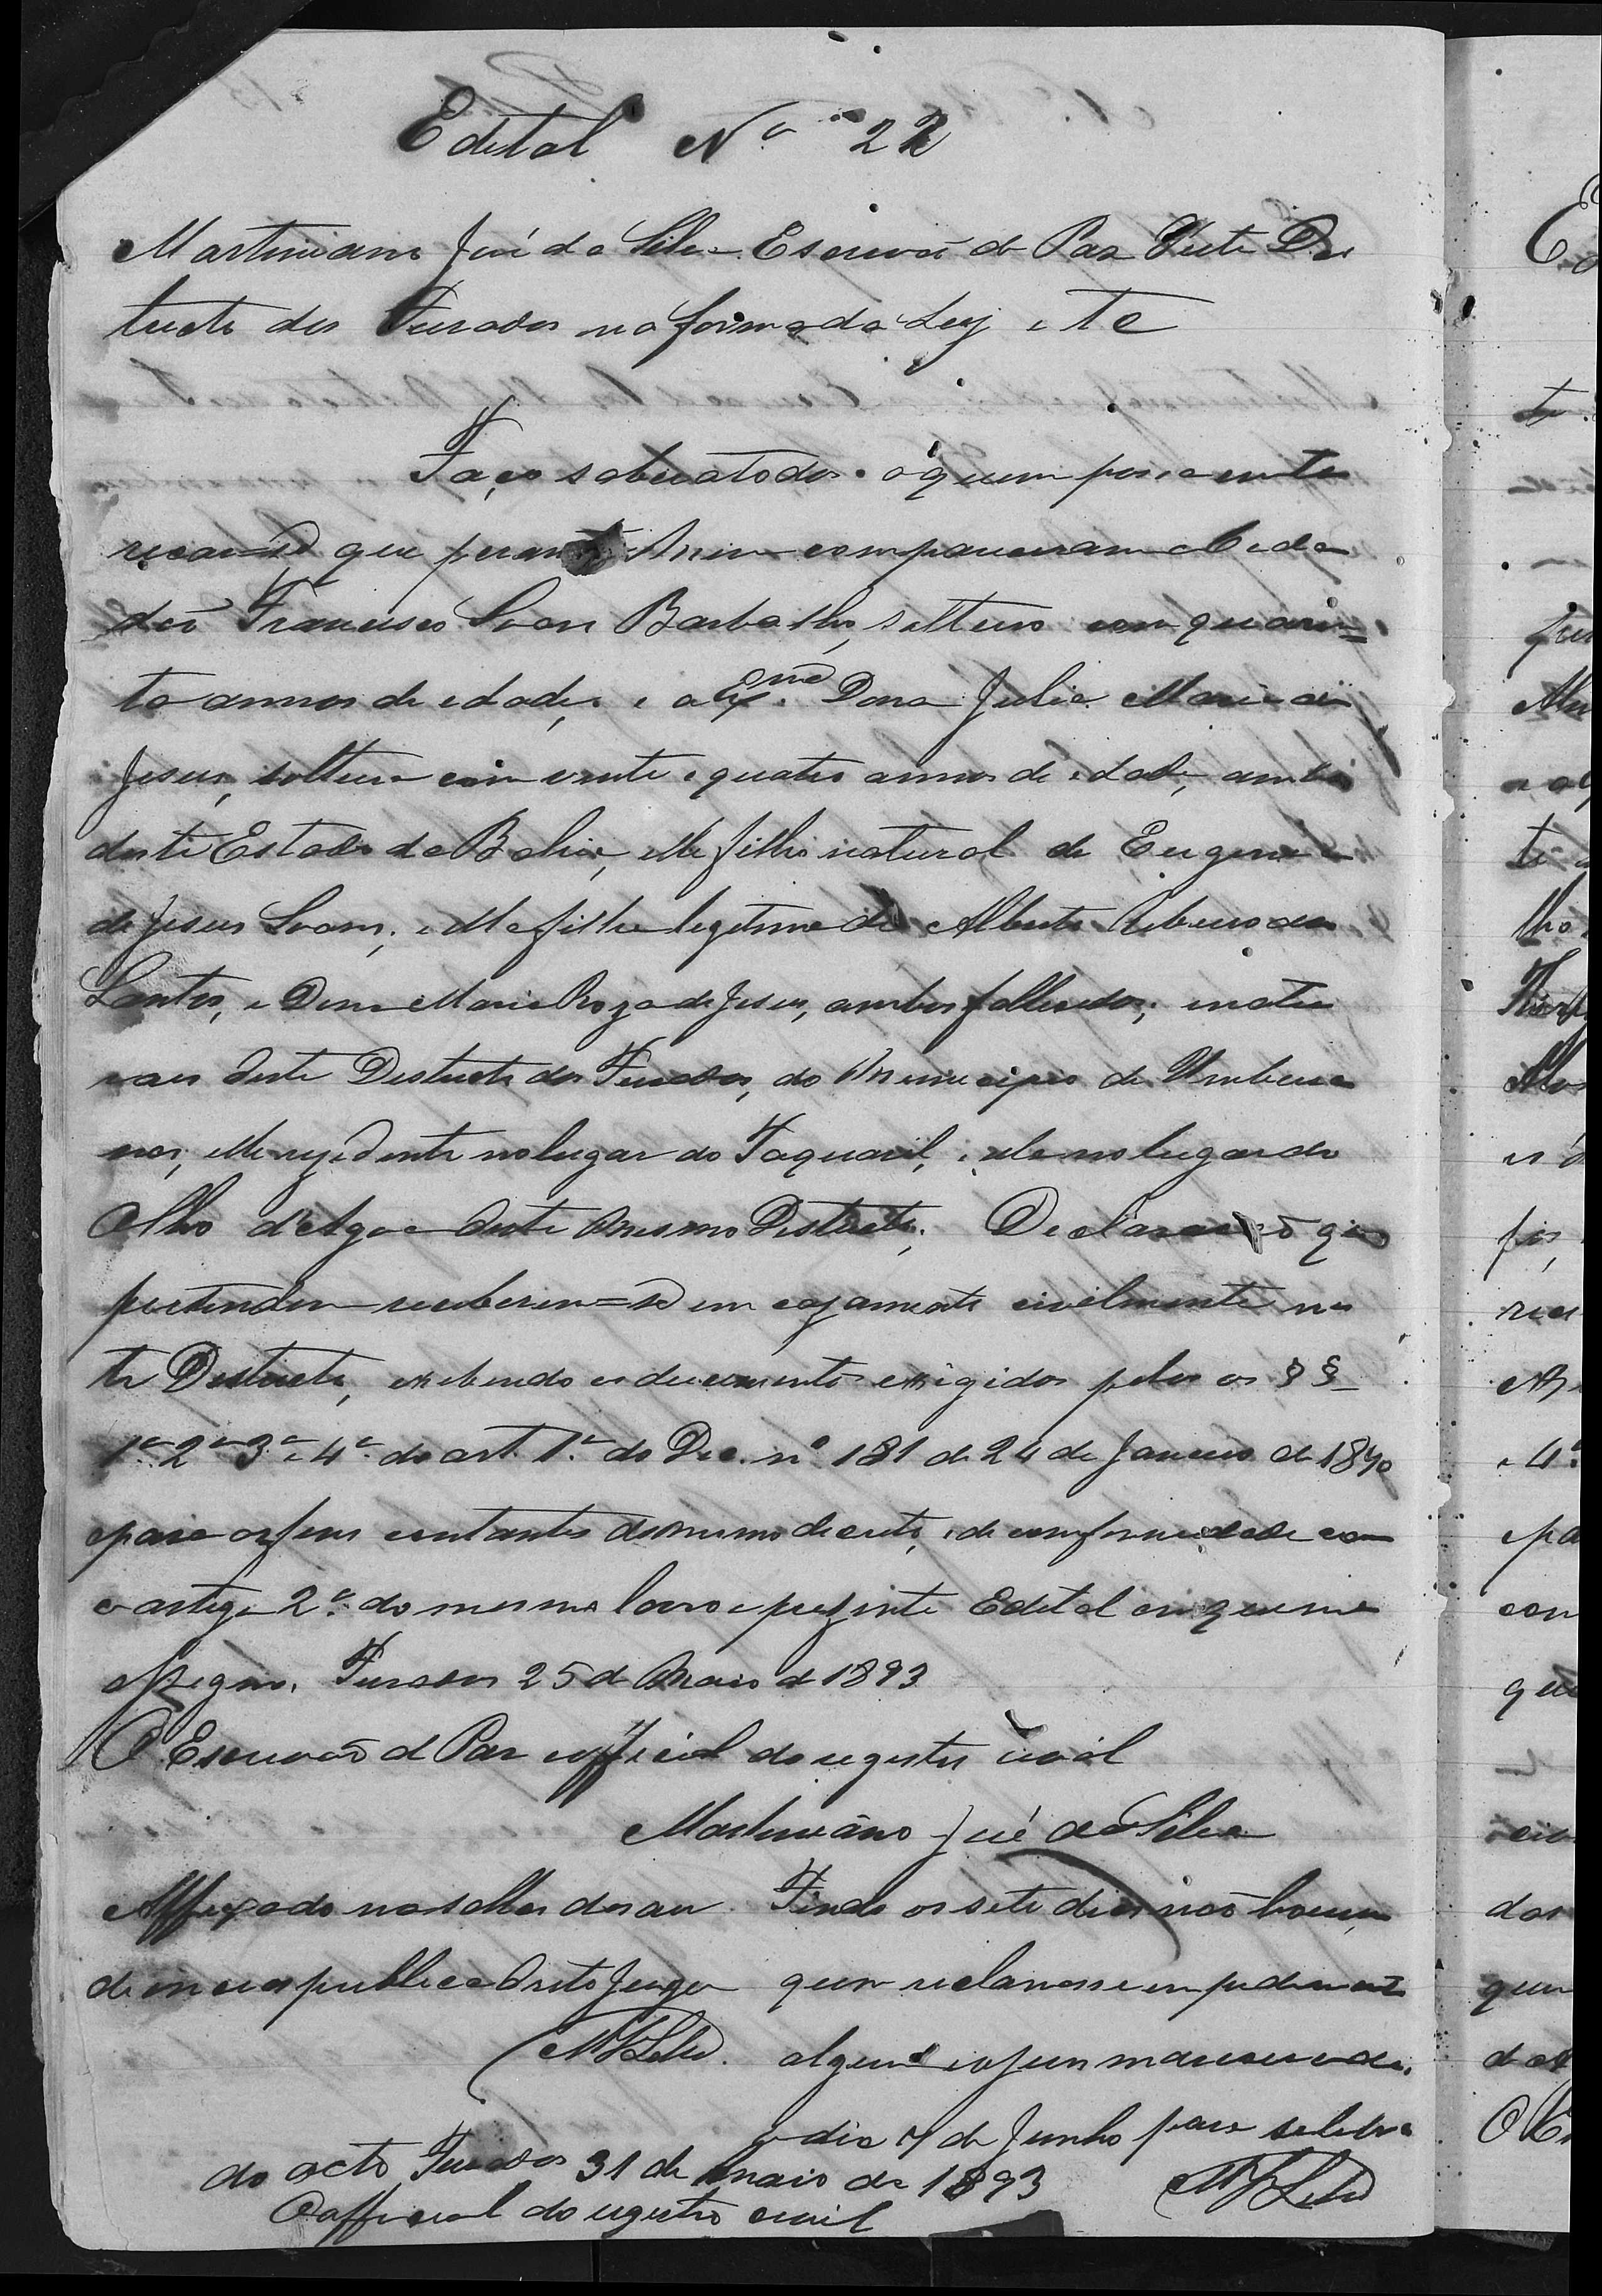 Edital Nº 22
Martiniano José da Silva Escrivão de Paz deste Dis
tricto dos Furados na forma da Ley etc
Faço saber a todos a quem possa inte
recar=se que perante mim compareceram o Cida
dão Francisco Soares Barbalho, solteiro com quaren=
ta annos de edade, e a Exmª Dona Julia Maria de
Jesus, solteira com vinte e quatro annos de edade, ambos
deste Estado da Bahia, elle filho natural de Eugenia
de Jesus Soares, e ella filha legitima de Alberto Ribeiro dos
Santos, e Dona Maria Roza de Jesus, ambos fallecidos, e natu
raes deste Destricto dos Furados, do Municipio de Umbura
nas, elle rezidente no lugar do Taquaril, e ella no lugar do
Olho d'Agoa deste mesmo Destricto; Declararão que
pretendem receberem=se em cazamento civelmente nes
te Destricto, exebindo os documentos exigidos pelos os §§
1º 2º 3º e 4º do art. 1º do Dec. nº 181 de 24 de Janeiro de 1890
e para os fins contantes do mesmo decreto, e de conformidade com
o artigo 2º do mesmo lavro o prezente Edital em que me
assigno. Furados 25 de Maio de 1893
O Escrivão de Paz official do registro civil
Martiniano José da Silva
Affixado na salla das au
diencias publica deste Juizo
MJSilva.
Findo os sete dias não houve
quem reclamasse empedimento
algum e o Juiz marcou
o dia 7 de Junho para selebra
do acto Furados 31 de maio de 1893
MJSilva
O official do registro civil